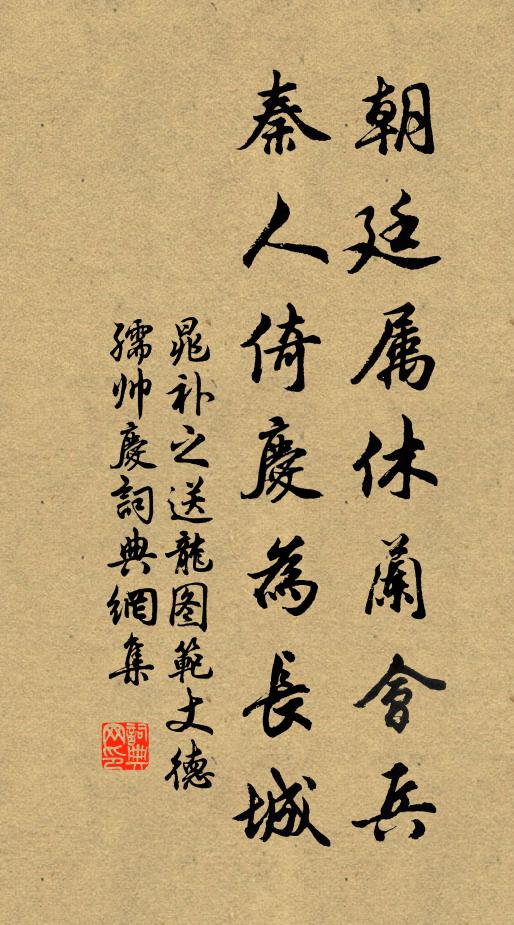 朝廷属休蘭會兵
秦人倚慶為長城
晁补之送龍图範丈德
孺帅慶詞典網集
詞典网印